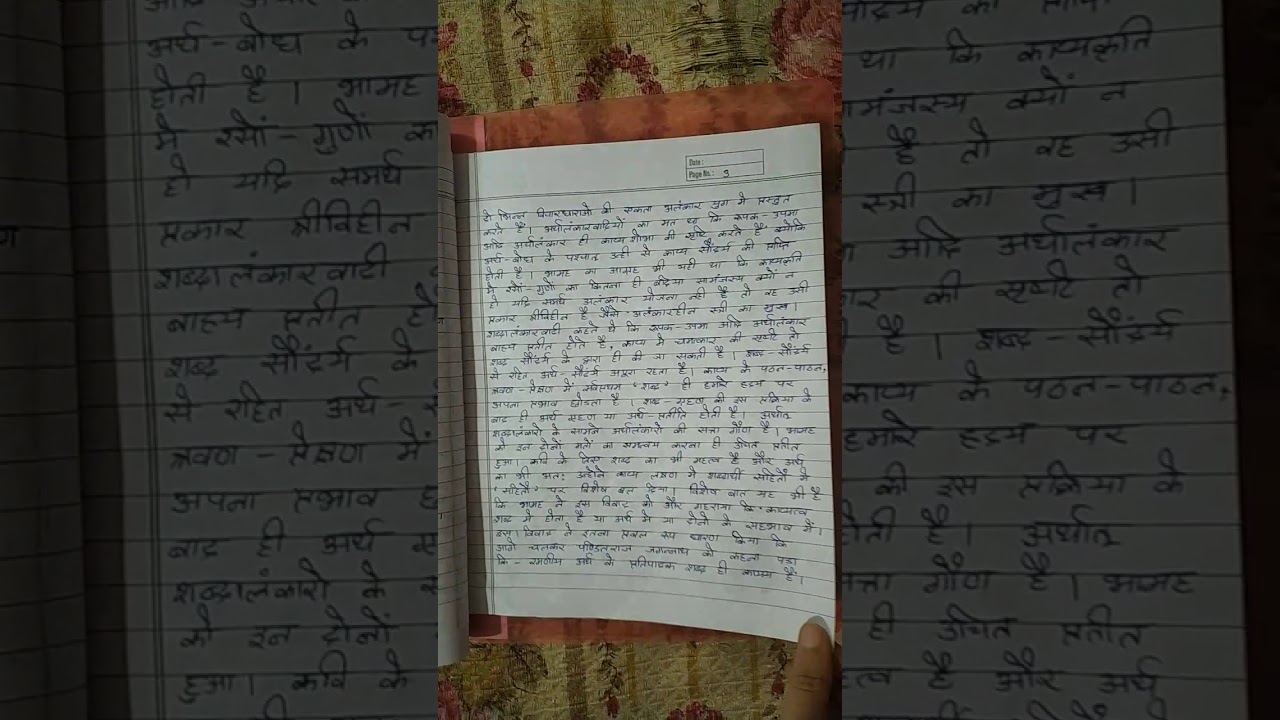 Date :
Page No.: 3
दो भिन्न विचारधाराओं की एकता अलंकार युग में प्रस्तुत
करते हैं। अर्थालंकारवादियों का मत था कि रूपक-उपमा
आदि अर्थालंकार ही काव्य शोभा की सृष्टि करते हैं क्योंकि
अर्थ-बोध के पश्चात उन्हीं से काव्य सौंदर्य की प्राप्ति
होती है। भामह का आग्रह भी यही था कि काव्यकृति
में रसों-गुणों का कितना ही बढ़िया सामंजस्य क्यों न
हो यदि समर्थ अलंकार योजना नहीं है तो वह उसी
प्रकार श्रीविहीन है जैसे-अलंकारहीन स्त्री का मुख।
शब्दालंकारवादी कहते थे कि रूपक-उपमा आदि अर्थालंकार
बाह्य प्रतीत होते है, काव्य में चमत्कार की सृष्टि तो
शब्द सौंदर्य के द्वारा ही की जा सकती है। शब्द-सौंदर्य
से रहित अर्थ-सौंदर्य अधूरा रहता है। काव्य के पठन-पाठन,
श्रवण-प्रेक्षण में सर्वप्रथम 'शब्द' ही हमारे हृदय पर
अपना प्रभाव छोड़ता है। शब्द-ग्रहण की इस प्रक्रिया के
बाद ही अर्थ ग्रहण या अर्थ-प्रतीति होती है। अर्थात्
शब्दालंकारो के सामने अर्थालंकारो की सत्ता गौण है। भामह
को इन दोनों मतों का समन्वय करना ही उचित प्रतीत
हुआ। कवि के लिए शब्द का भी महत्व है और अर्थ
का भी अतः उन्होंने काव्य लक्षण में शब्दार्थौ सहितौ में
'सहितौ' पर विशेष बल दिया। विशेष बात यह भी है
कि भामह ने इस विवाद को और गहराया कि 'काव्यत्व
शब्द में होता है या अर्थ में या दोनों के सहभाव में।
इस विवाद ने इतना प्रबल रूप धारण किया कि
आगे चलकर पण्डितराज जगन्नाथ को कहना पड़ा
कि - रमणीय अर्थ के प्रतिपादक शब्द ही काव्य है।